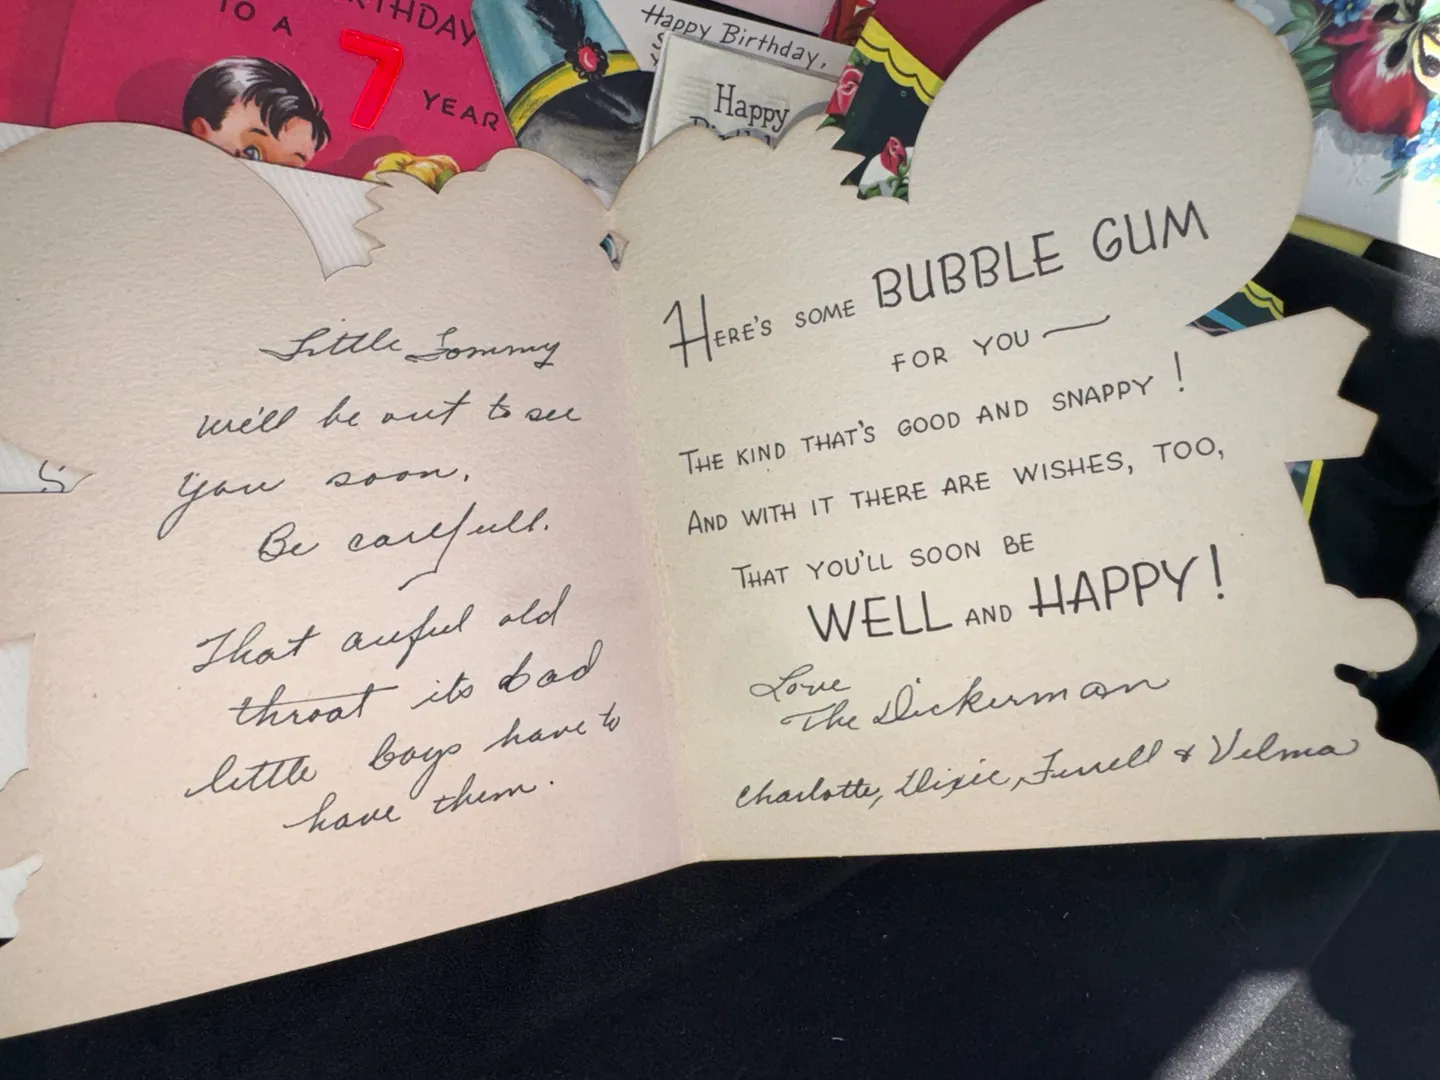 BIRTHDAY
TO A
7
YEAR
Happy Birthday,
Happy
Little Tommy
We'll be out to see
you soon.
Be carefull.
That awful old
throat its bad
little boys have to
have them.
HERE'S SOME BUBBLE GUM
FOR YOU
THE KIND THAT'S GOOD AND SNAPPY!
AND WITH IT THERE ARE WISHES, TOO,
THAT YOU'LL SOON BE
WELL AND HAPPY!
Love
The Dickerman
Charlotte, Dixie, Ferrell & Velma